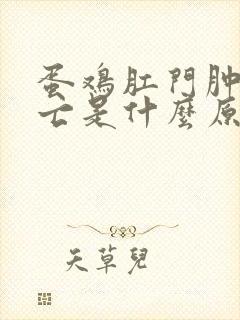 蛋鸡肛門肿
亡是什麼原
天草兒